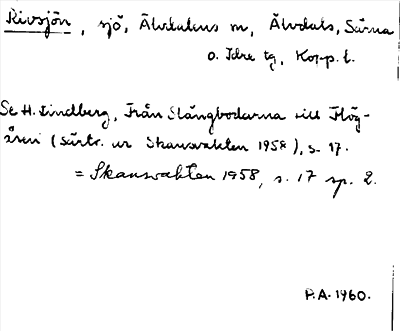 Rivsjön, sjö, Älvdalens m, Älvdals, Särna
o. Idre tg, Kopp. l.
Se H. Lindberg, Från Slängbodarna till Flög-
åsen (särtr. ur Skansvakten 1958), s. 17.
= Skansvakten 1958, s. 17 sp. 2.
P.A. 1960.